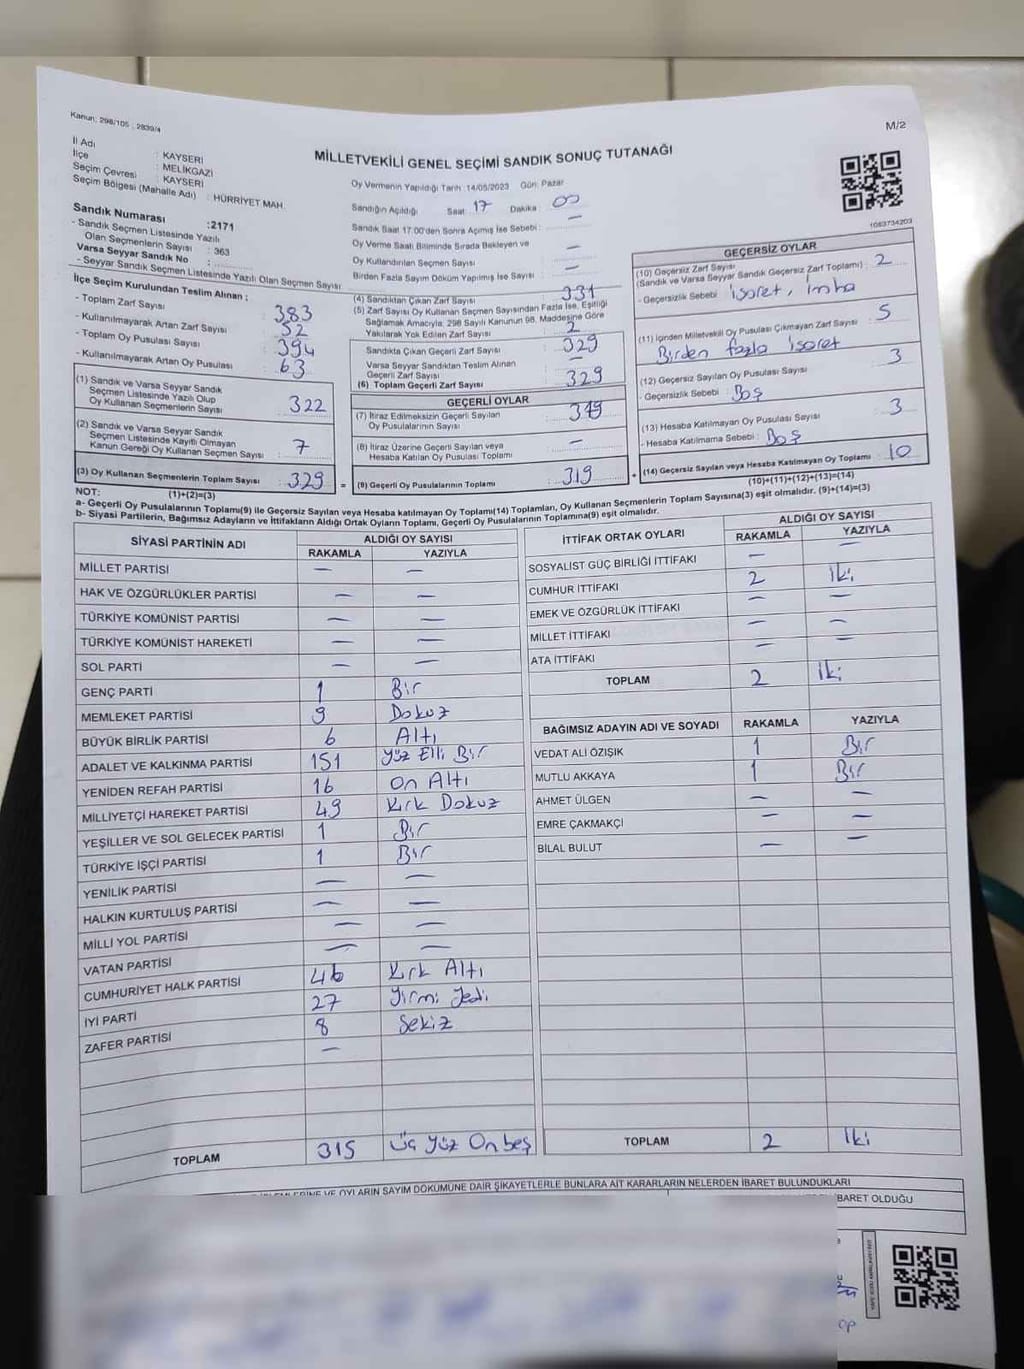 Kanun: 298/105 : 2839/4
M/2
MİLLETVEKİLİ GENEL SEÇİMİ SANDIK SONUÇ TUTANAĞI
İl Adı : KAYSERİ
İlçe : MELİKGAZİ
Seçim Çevresi : KAYSERİ
Seçim Bölgesi (Mahalle Adı) : HÜRRİYET MAH.
Sandık Numarası :2171
- Sandık Seçmen Listesinde Yazılı
Olan Seçmenlerin Sayısı : 363
Varsa Seyyar Sandık No :
- Seyyar Sandık Seçmen Listesinde Yazılı Olan Seçmen Sayısı
İlçe Seçim Kurulundan Teslim Alınan ;
- Toplam Zarf Sayısı : 383
- Kullanılmayarak Artan Zarf Sayısı : 52
- Toplam Oy Pusulası Sayısı : 394
- Kullanılmayarak Artan Oy Pusulası : 63
(1) Sandık ve Varsa Seyyar Sandık
Seçmen Listesinde Yazılı Olup
Oy Kullanan Seçmenlerin Sayısı : 322
(2) Sandık ve Varsa Seyyar Sandık
Seçmen Listesinde Kayıtlı Olmayan
Kanun Gereği Oy Kullanan Seçmen Sayısı : 7
(3) Oy Kullanan Seçmenlerin Toplam Sayısı : 329
(1)+(2)=(3)
Oy Vermenin Yapıldığı Tarih: 14/05/2023 Gün: Pazar
Sandığın Açıldığı Saat : 17 Dakika : 00
Sandık Saat 17:00'den Sonra Açılmış İse Sebebi : —
Oy Verme Saati Bitiminde Sırada Bekleyen ve
Oy Kullandırılan Seçmen Sayısı : —
Birden Fazla Sayım Döküm Yapılmış İse Sayısı : —
(4) Sandıktan Çıkan Zarf Sayısı : 331
(5) Zarf Sayısı Oy Kullanan Seçmen Sayısından Fazla İse, Eşitliği
Sağlamak Amacıyla, 298 Sayılı Kanunun 98. Maddesine Göre
Yakılarak Yok Edilen Zarf Sayısı : 2
Sandıkta Çıkan Geçerli Zarf Sayısı : 329
Varsa Seyyar Sandıktan Teslim Alınan
Geçerli Zarf Sayısı : —
(6) Toplam Geçerli Zarf Sayısı : 329
GEÇERLİ OYLAR
(7) İtiraz Edilmeksizin Geçerli Sayılan
Oy Pusulalarının Sayısı : 319
(8) İtiraz Üzerine Geçerli Sayılan veya
Hesaba Katılan Oy Pusulası Toplamı : —
= (9) Geçerli Oy Pusulalarının Toplamı : 319 +
1083734203
GEÇERSİZ OYLAR
(10) Geçersiz Zarf Sayısı
(Sandık ve Varsa Seyyar Sandık Geçersiz Zarf Toplamı) : 2
- Geçersizlik Sebebi : işaret, imha
(11) İçinden Milletvekili Oy Pusulası Çıkmayan Zarf Sayısı : 5
Birden fazla işaret
(12) Geçersiz Sayılan Oy Pusulası Sayısı : 3
- Geçersizlik Sebebi : Boş
(13) Hesaba Katılmayan Oy Pusulası Sayısı : 3
- Hesaba Katılmama Sebebi : Boş
(14) Geçersiz Sayılan veya Hesaba Katılmayan Oy Toplamı : 10
(10)+(11)+(12)+(13)=(14)
NOT:
a- Geçerli Oy Pusulalarının Toplamı(9) ile Geçersiz Sayılan veya Hesaba katılmayan Oy Toplamı(14) Toplamları, Oy Kullanan Seçmenlerin Toplam Sayısına(3) eşit olmalıdır. (9)+(14)=(3)
b- Siyasi Partilerin, Bağımsız Adayların ve İttifakların Aldığı Ortak Oyların Toplamı, Geçerli Oy Pusulalarının Toplamına(9) eşit olmalıdır.
SİYASİ PARTİNİN ADI ALDIĞI OY SAYISI
RAKAMLA YAZIYLA
MİLLET PARTİSİ — —
HAK VE ÖZGÜRLÜKLER PARTİSİ — —
TÜRKİYE KOMÜNİST PARTİSİ — —
TÜRKİYE KOMÜNİST HAREKETİ — —
SOL PARTİ — —
GENÇ PARTİ 1 Bir
MEMLEKET PARTİSİ 9 Dokuz
BÜYÜK BİRLİK PARTİSİ 6 Altı
ADALET VE KALKINMA PARTİSİ 151 Yüz Elli Bir
YENİDEN REFAH PARTİSİ 16 On Altı
MİLLİYETÇİ HAREKET PARTİSİ 49 Kırk Dokuz
YEŞİLLER VE SOL GELECEK PARTİSİ 1 Bir
TÜRKİYE İŞÇİ PARTİSİ 1 Bir
YENİLİK PARTİSİ — —
HALKIN KURTULUŞ PARTİSİ — —
MİLLİ YOL PARTİSİ — —
VATAN PARTİSİ — —
CUMHURİYET HALK PARTİSİ 46 Kırk Altı
İYİ PARTİ 27 Yirmi Yedi
ZAFER PARTİSİ 8 Sekiz
—
TOPLAM 315 Üç Yüz On beş
İTTİFAK ORTAK OYLARI ALDIĞI OY SAYISI
RAKAMLA YAZIYLA
SOSYALİST GÜÇ BİRLİĞİ İTTİFAKI — —
CUMHUR İTTİFAKI 2 İki
EMEK VE ÖZGÜRLÜK İTTİFAKI — —
MİLLET İTTİFAKI — —
ATA İTTİFAKI — —
TOPLAM 2 İki
BAĞIMSIZ ADAYIN ADI VE SOYADI RAKAMLA YAZIYLA
VEDAT ALİ ÖZIŞIK 1 Bir
MUTLU AKKAYA 1 Bir
AHMET ÜLGEN — —
EMRE ÇAKMAKÇI — —
BİLAL BULUT — —
TOPLAM 2 İki
VE OYLARIN SAYIM DÖKÜMÜNE DAİR ŞİKAYETLERLE BUNLARA AİT KARARLARIN NELERDEN İBARET BULUNDUKLARI
İBARET OLDUĞU